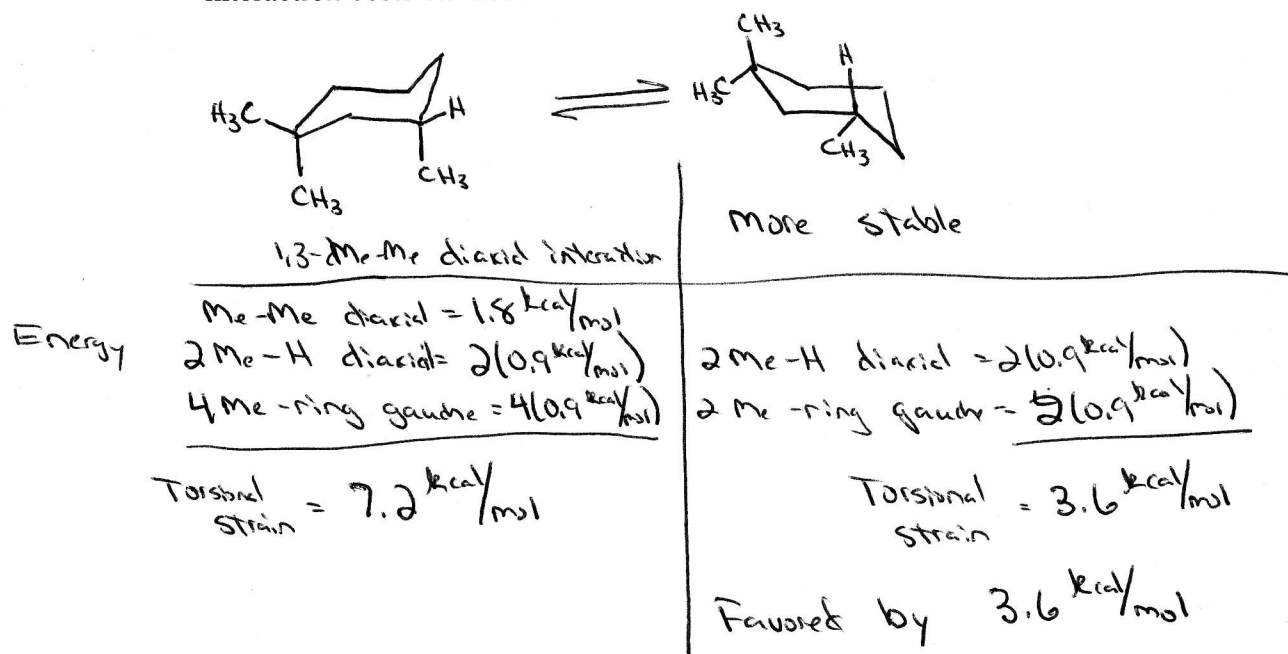 CH3
H3C
H
CH3
CH3
H
H3C
CH3
more stable
1,3-Me-Me diaxial interaction
Energy
Me-Me diaxial = 1.8 kcal/mol
2 Me-H diaxial = 2(0.9 kcal/mol)
4 Me-ring gauche = 4(0.9 kcal/mol)
Torsional strain = 7.2 kcal/mol
2 Me-H diaxial = 2(0.9 kcal/mol)
2 Me-ring gauche = 2(0.9 kcal/mol)
Torsional strain = 3.6 kcal/mol
Favored by 3.6 kcal/mol